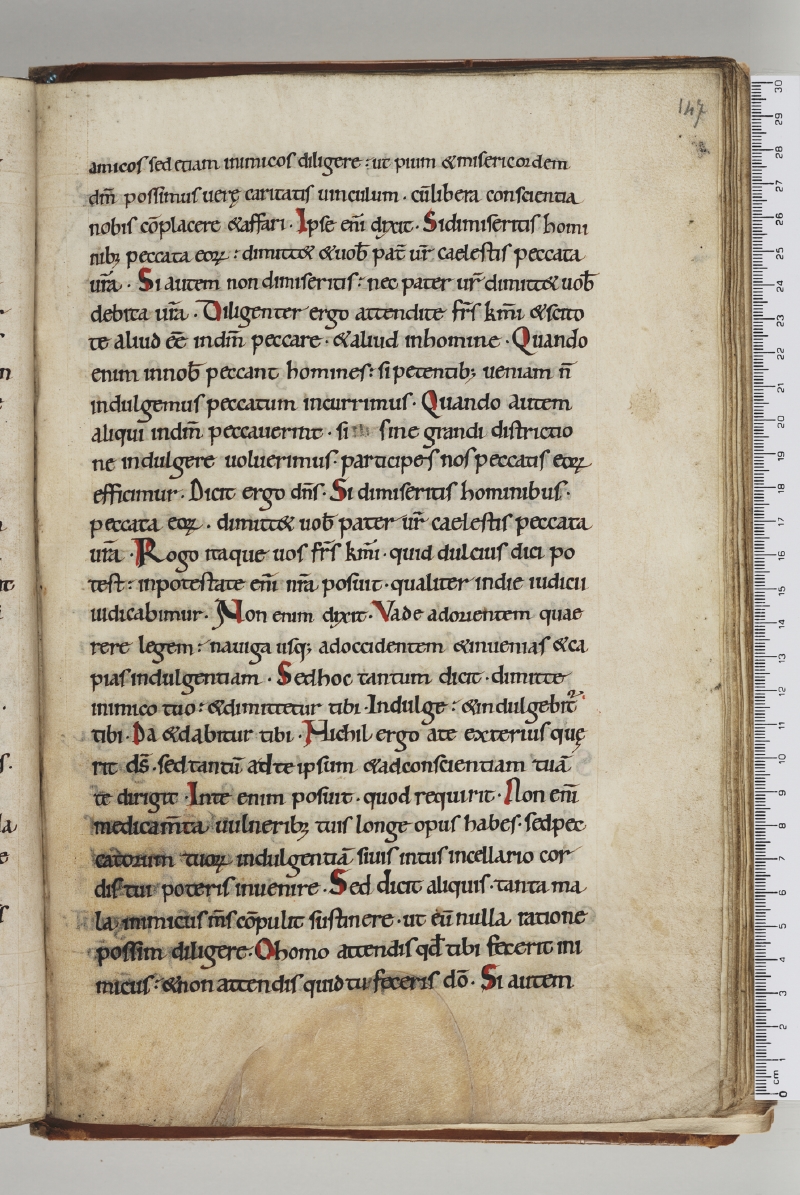 147
amicos sed etiam inimicos diligere : ut pium & misericordem
dm̄ possimus uerę caritatis uinculum . cū libera conscientia
nobis cōplacere & affari . Ipse eni̅ dixit . Si dimiseritis homi
nibꝫ peccata eoꝝ : dimitt& & uob̄ pat̄ ur̄ caelestis peccata
ur̄a . Si autem non dimiseritis : nec pater ur̄ dimitt& uob̄
debita ur̄a . Diligenter ergo attendite frs̄ km̄i & scito
te aliud eē in dm̄ peccare . & aliud in homine . Quando
enim in nob̄ peccant homines : si petentibꝫ ueniam n̄
indulgemus peccatum incurrimus . Quando autem
aliqui in dm̄ peccauerint . si sine grandi districtio
ne indulgere uoluerimus . participes nos peccatis eoꝝ
efficimur . Dicit ergo dn̄s . Si dimiseritis hominibus .
peccata eoꝝ . dimitt& uob̄ pater ur̄ caelestis peccata
ur̄a . Rogo itaque uos frs̄ km̄i . quid dulcius dici po
test : in potestate eni̅ nr̄a posuit . qualiter in die iudicii
iudicabimur . Non enim dixit . Vade ad orientem quae
rere legem : nauiga usqꝫ ad occidentem & inuenias & ca
pias indulgentiam . Sed hoc tantum dicit . dimitte
inimico tuo : & dimittetur tibi . Indulge : & indulgebit᷑
tibi . Da & dabitur tibi . Nichil ergo a te exterius quę
rit ds̄ . sed tantū ad te ipsum & ad conscientiam tuā
te dirigit . In te enim posuit . quod requirit . Non eni̅
medicam̄ta uulneribꝫ tuis longe opus habes . sed pec
catorum tuoꝝ indulgentiā si uis intus in cellario cor
dis tui poteris inuenire . Sed dicit aliquis . tanta ma
la inimicus m̄s cōpulit sustinere . ut eū nulla ratione
possim diligere . O homo attendis qd̄ tibi fecerit ini
micus : & non attendis quid tu feceris dō . Si autem